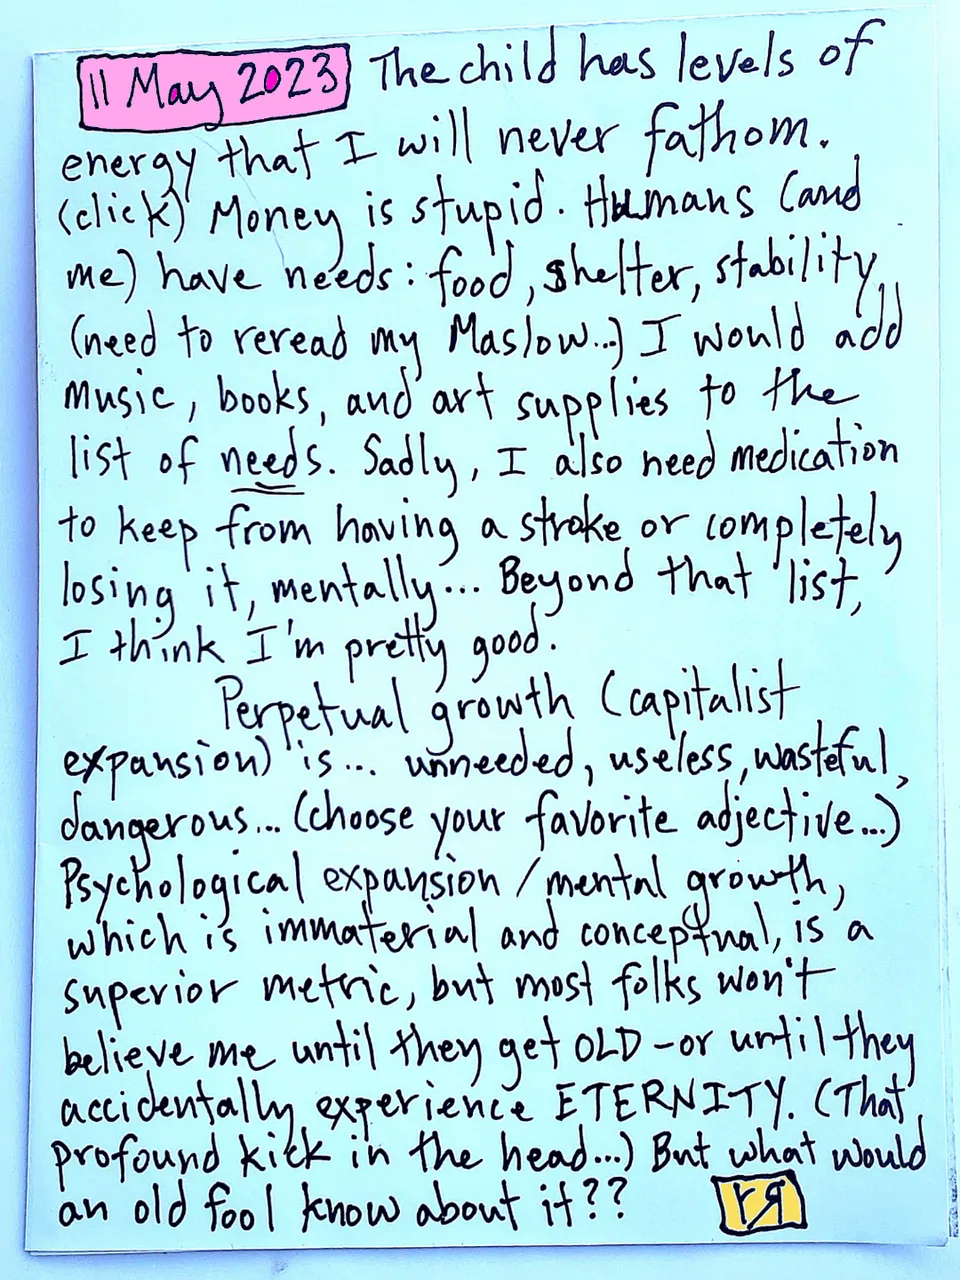 11 May 2023 The child has levels of
energy that I will never fathom.
(click) Money is stupid. Humans (and
me) have needs: food, shelter, stability,
(need to reread my Maslow...) I would add
music, books, and art supplies to the
list of needs. Sadly, I also need medication
to keep from having a stroke or completely
losing it, mentally... Beyond that list,
I think I'm pretty good.
Perpetual growth (capitalist
expansion) is... unneeded, useless, wasteful,
dangerous... (choose your favorite adjective...)
Psychological expansion/mental growth,
which is immaterial and conceptual, is a
superior metric, but most folks won't
believe me until they get OLD - or until they
accidentally experience ETERNITY. (That
profound kick in the head...) But what would
an old fool know about it??